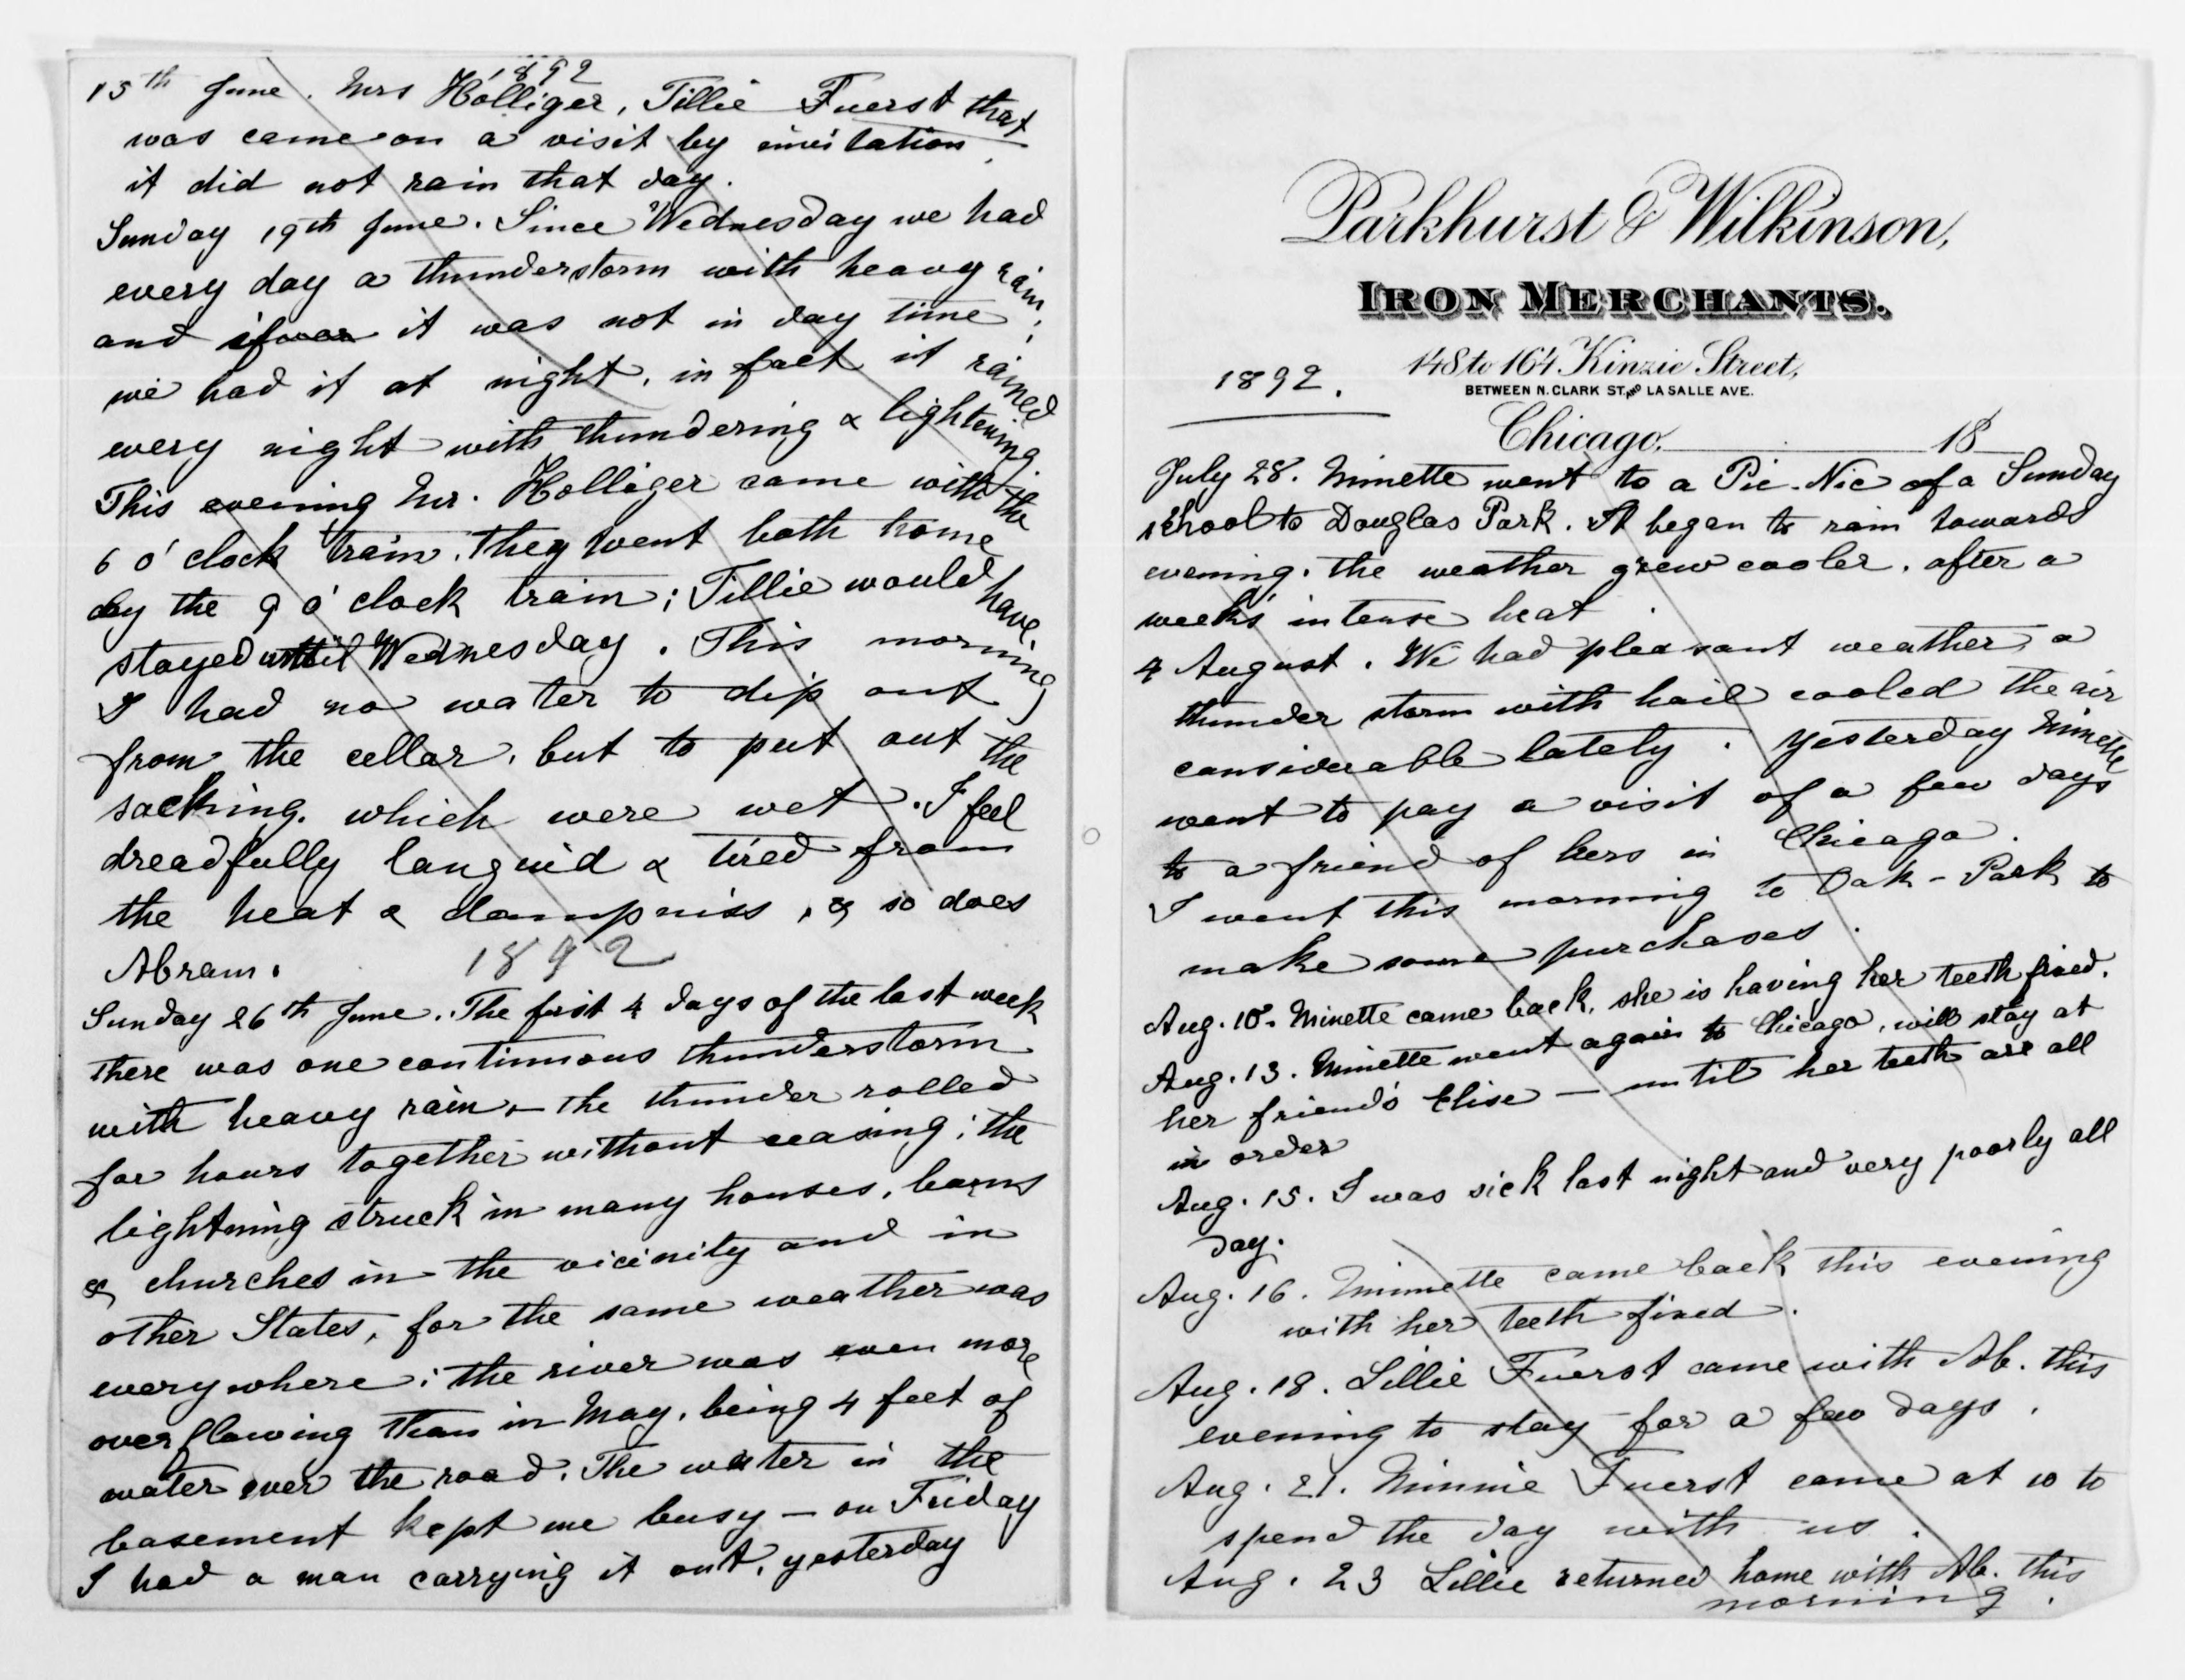 1892
15th June. Mrs Holliger, Tillie Fuerst that
was came on a visit by invitation,
it did not rain that day.
Sunday 19th June. Since Wednesday we had
every day a thunderstorm with heavy rain,
and it was not in day time
we had it at night, in fact it rained
every night with thundering & lightening.
This evening Mr. Holliger came with the
6 o'clock train. They went both home
by the 9 o'clock train; Tillie would have
stayed until Wednesday. This morning
I had no water to dip out
from the cellar, but to put out the
sacking, which were wet. I feel
dreadfully languid & tired from
the heat & dampniss, & so does
Abram.
1892
Sunday 26th June. The first 4 days of the last week
there was one continuous thunderstorm
with heavy rain, – the thunder rolled
for hours together without ceasing; the
lightning struck in many houses, barns
& churches in the vicinity and in
other States, for the same weather was
everywhere; the river was even more
overflowing than in May, being 4 feet of
water over the road. The water in the
basement kept me busy – on Friday
I had a man carrying it out, yesterday
Parkhurst & Wilkinson,
IRON MERCHANTS.
148 to 164 Kinzie Street,
BETWEEN N. CLARK ST. AND LA SALLE AVE.
1892.
Chicago, 18
July 28. Minette went to a Pic-Nic of a Sunday
school to Douglas Park. It began to rain towards
evening. the weather grew cooler, after a
weeks' intense heat.
4 August. We had pleasant weather, a
thunder storm with hail cooled the air
considerable lately. Yesterday Minette
went to pay a visit of a few days
to a friend of hers in Chicago.
I went this morning to Oak-Park to
make some purchases.
Aug. 10. Minette came back, she is having her teeth fixed.
Aug. 13. Minette went again to Chicago, will stay at
her friend's Elise — until her teeth are all
in order
Aug. 15. I was sick last night and very poorly all
day.
Aug. 16. Minnette came back this evening
with her teeth fixed.
Aug. 18. Lillie Fuerst came with Ab. this
evening to stay for a few days.
Aug. 21. Minnie Fuerst came at 10 to
spend the day with us.
Aug. 23 Lillie returned home with Ab. this
morning.